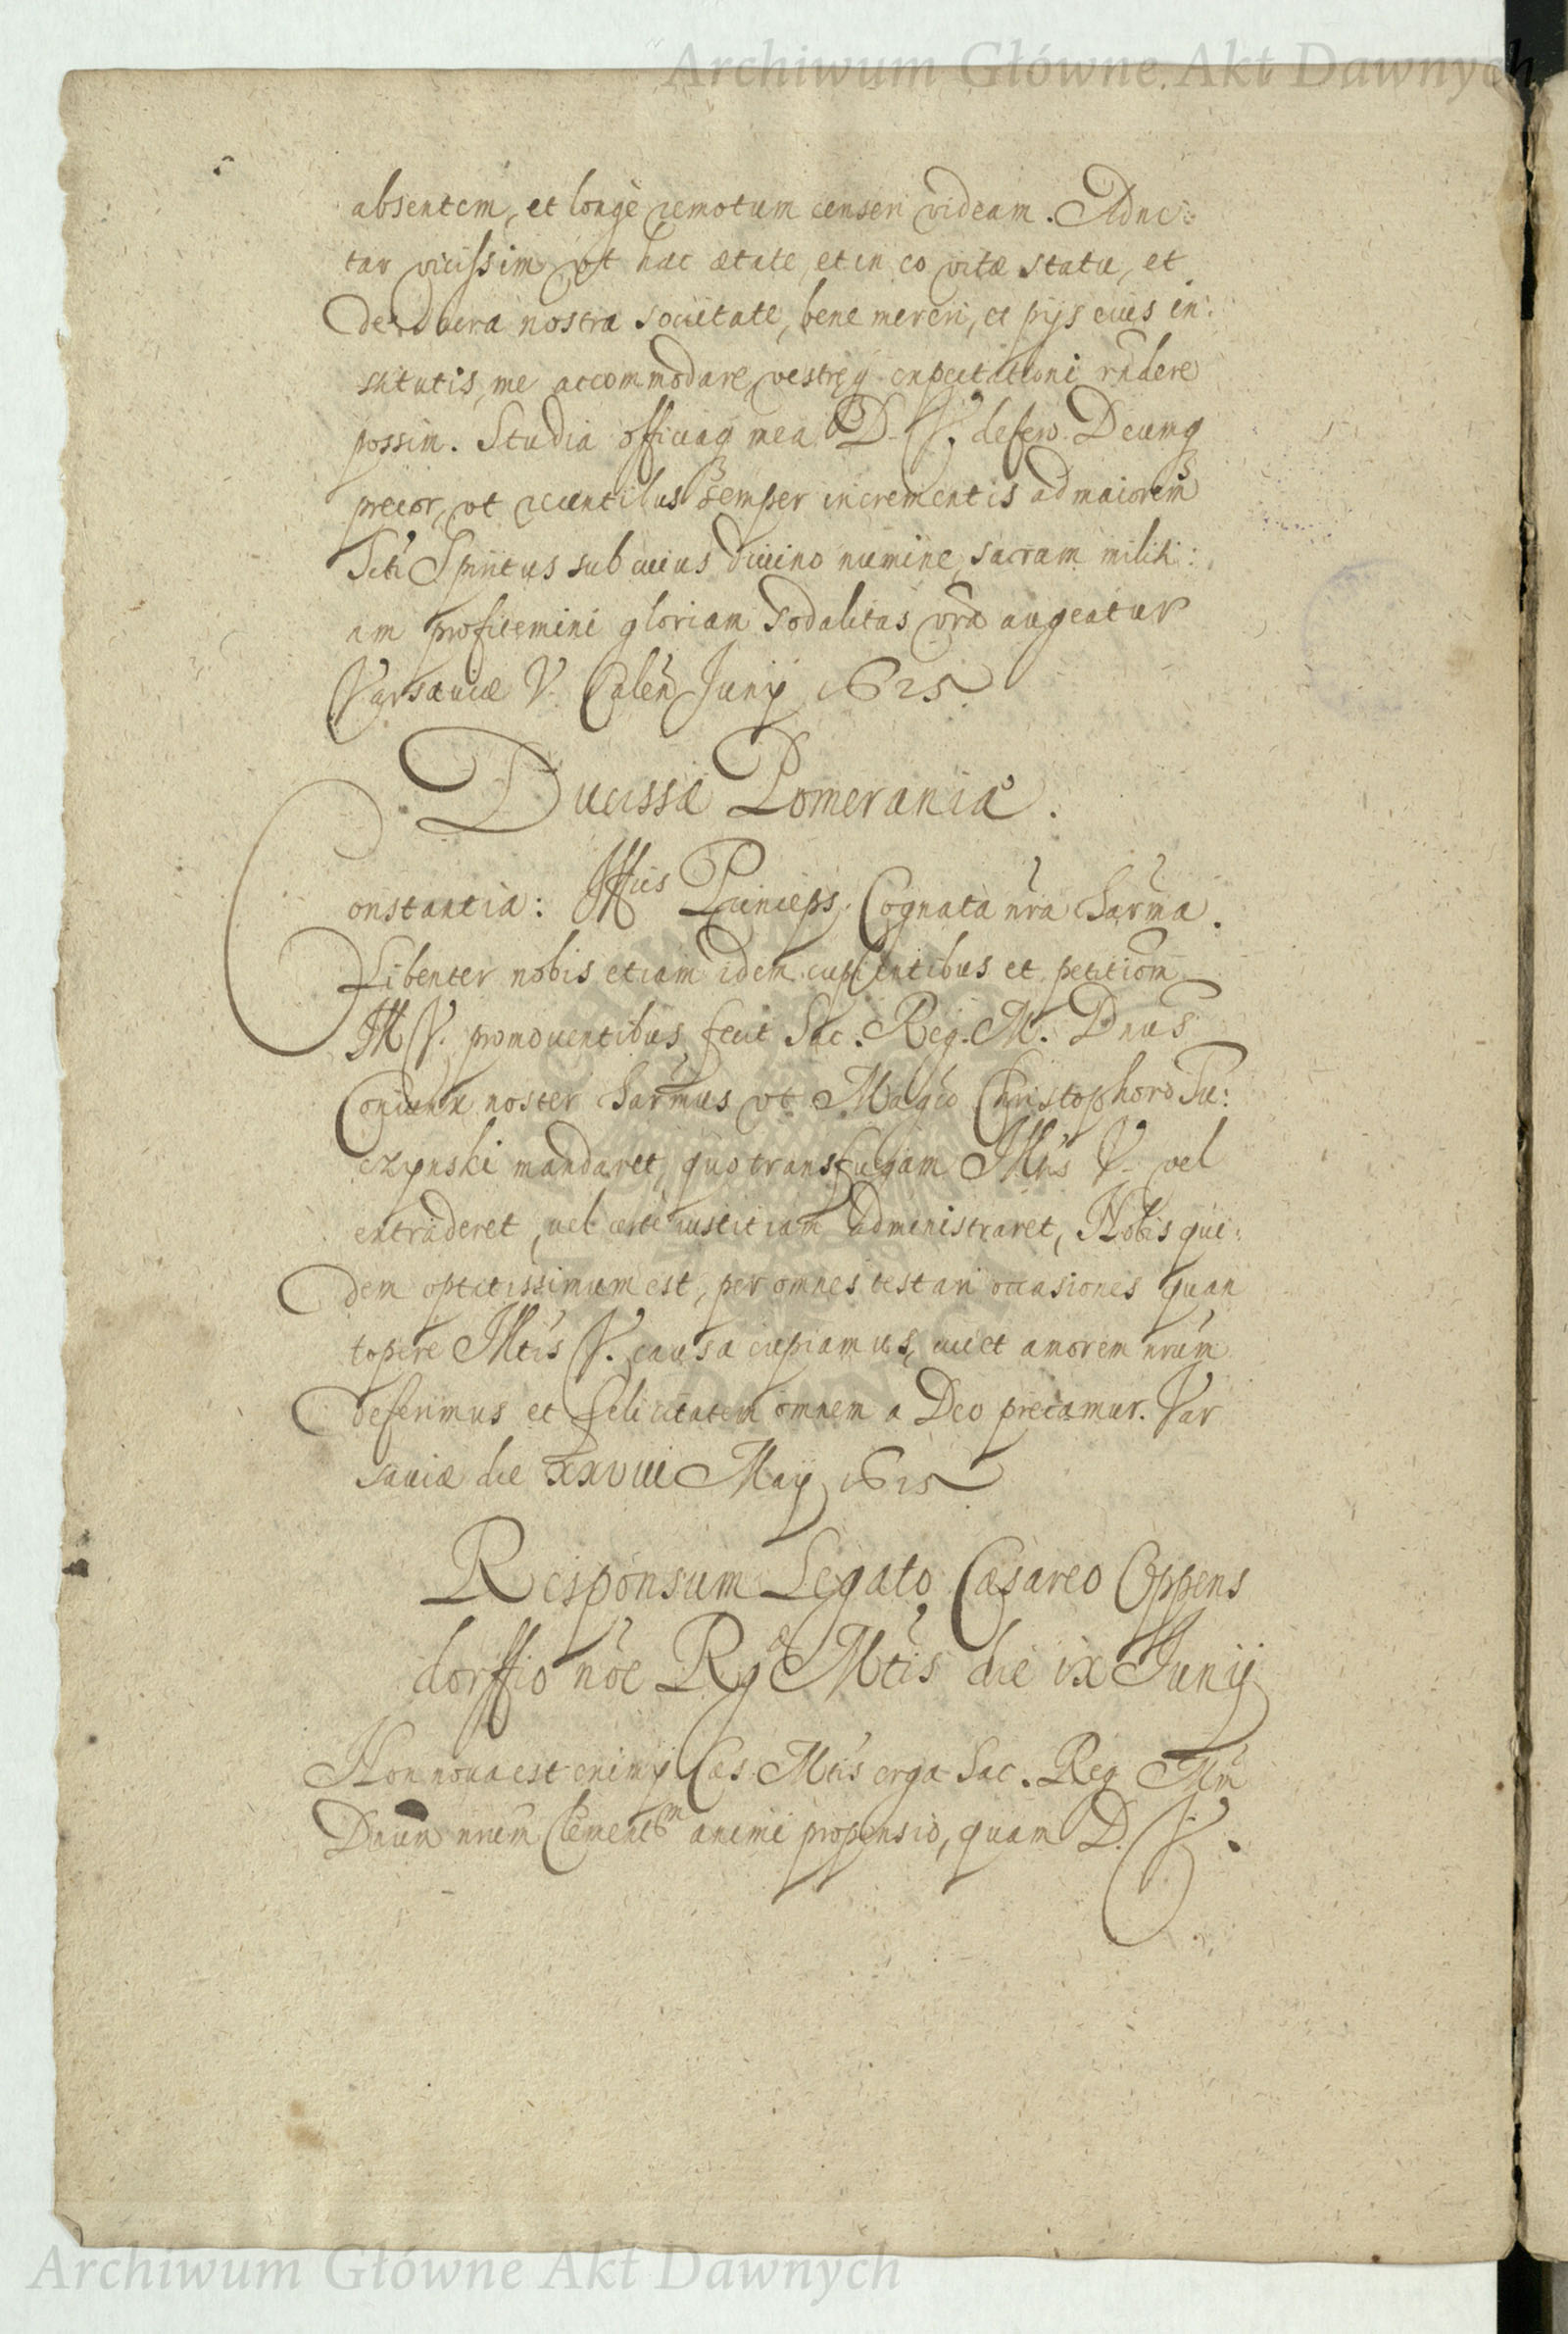 Archiwum Główne Akt Dawnych
absentem, et longè remotum censeri videam. Adni:
tar vicissim vt hac ætate, et in eo vitæ statu, et
de vera nostra societate, bene mereri, et pijs eius in:
stitutis, me accommodare, vestręq expectationi rñdere
possim. Studia officiaq mea D. V. defero. Deumq
precor, vt recentibus semper incrementis ad maiorem
Scti Spiritus sub cuius diuino numine, sacram militi:
am profitemini gloriam Sodalitas vrã augeatur
Varsauiæ V. Calen̄ Junij 1625
Ducissæ Pomeraniæ.
Constantia: Princeps. Cognata nr̃a Charm̃a.
Libenter nobis etiam idem cupientibus et petitiom̃
V. promouentibus, fecit Sac. Reg. M. Dnus
Coniunx noster Charm̃us vt Magco Christophoro Tu:
czynski mandaret, quo transfugam V. vel
extraderet, vel certe iustitiam administraret, Nobis qui:
dem optatissimum est, per omnes testari occasiones quan
topere V. causa cupiamus, cui et amorem nrũm
deferimus et felicitatem omnem a Deo precamur. Var
sauiæ die XXVIII Maij 1625
Responsum Legato Cæsareo Oppens
dorffio nõe Rg Mtis die ix Junij
Non noua est Cæs. Mtis erga Sac. Reg Mm̃
Dnum nrũm animi propensio, quam D. V.
Archiwum Główne Akt Dawnych